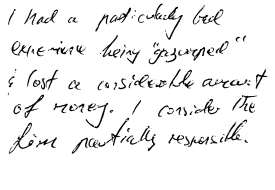 I had a particularly bad
experience being "gazumped"
& lost a considerable amount
of money. I consider the
firm partially responsible.